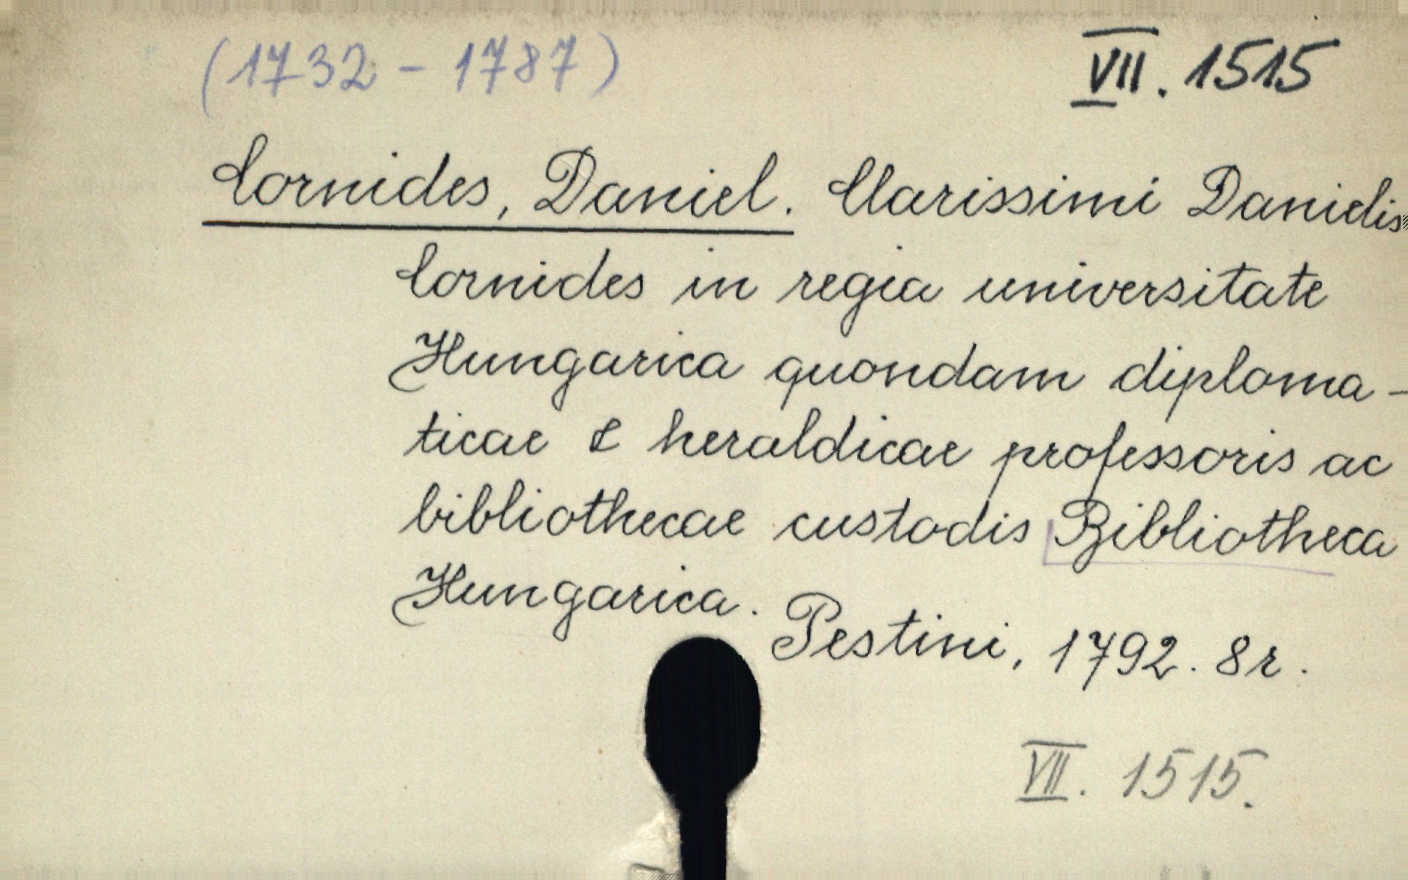 (1732 - 1787)
VII. 1515
Cornides, Daniel. Clarissimi Danielis
Cornides in regia universitate
Hungarica quondam diploma-
ticae & heraldicae professoris ac
bibliothecae custodis Bibliotheca
Hungarica. Pestini, 1792. 8r.
VII. 1515.